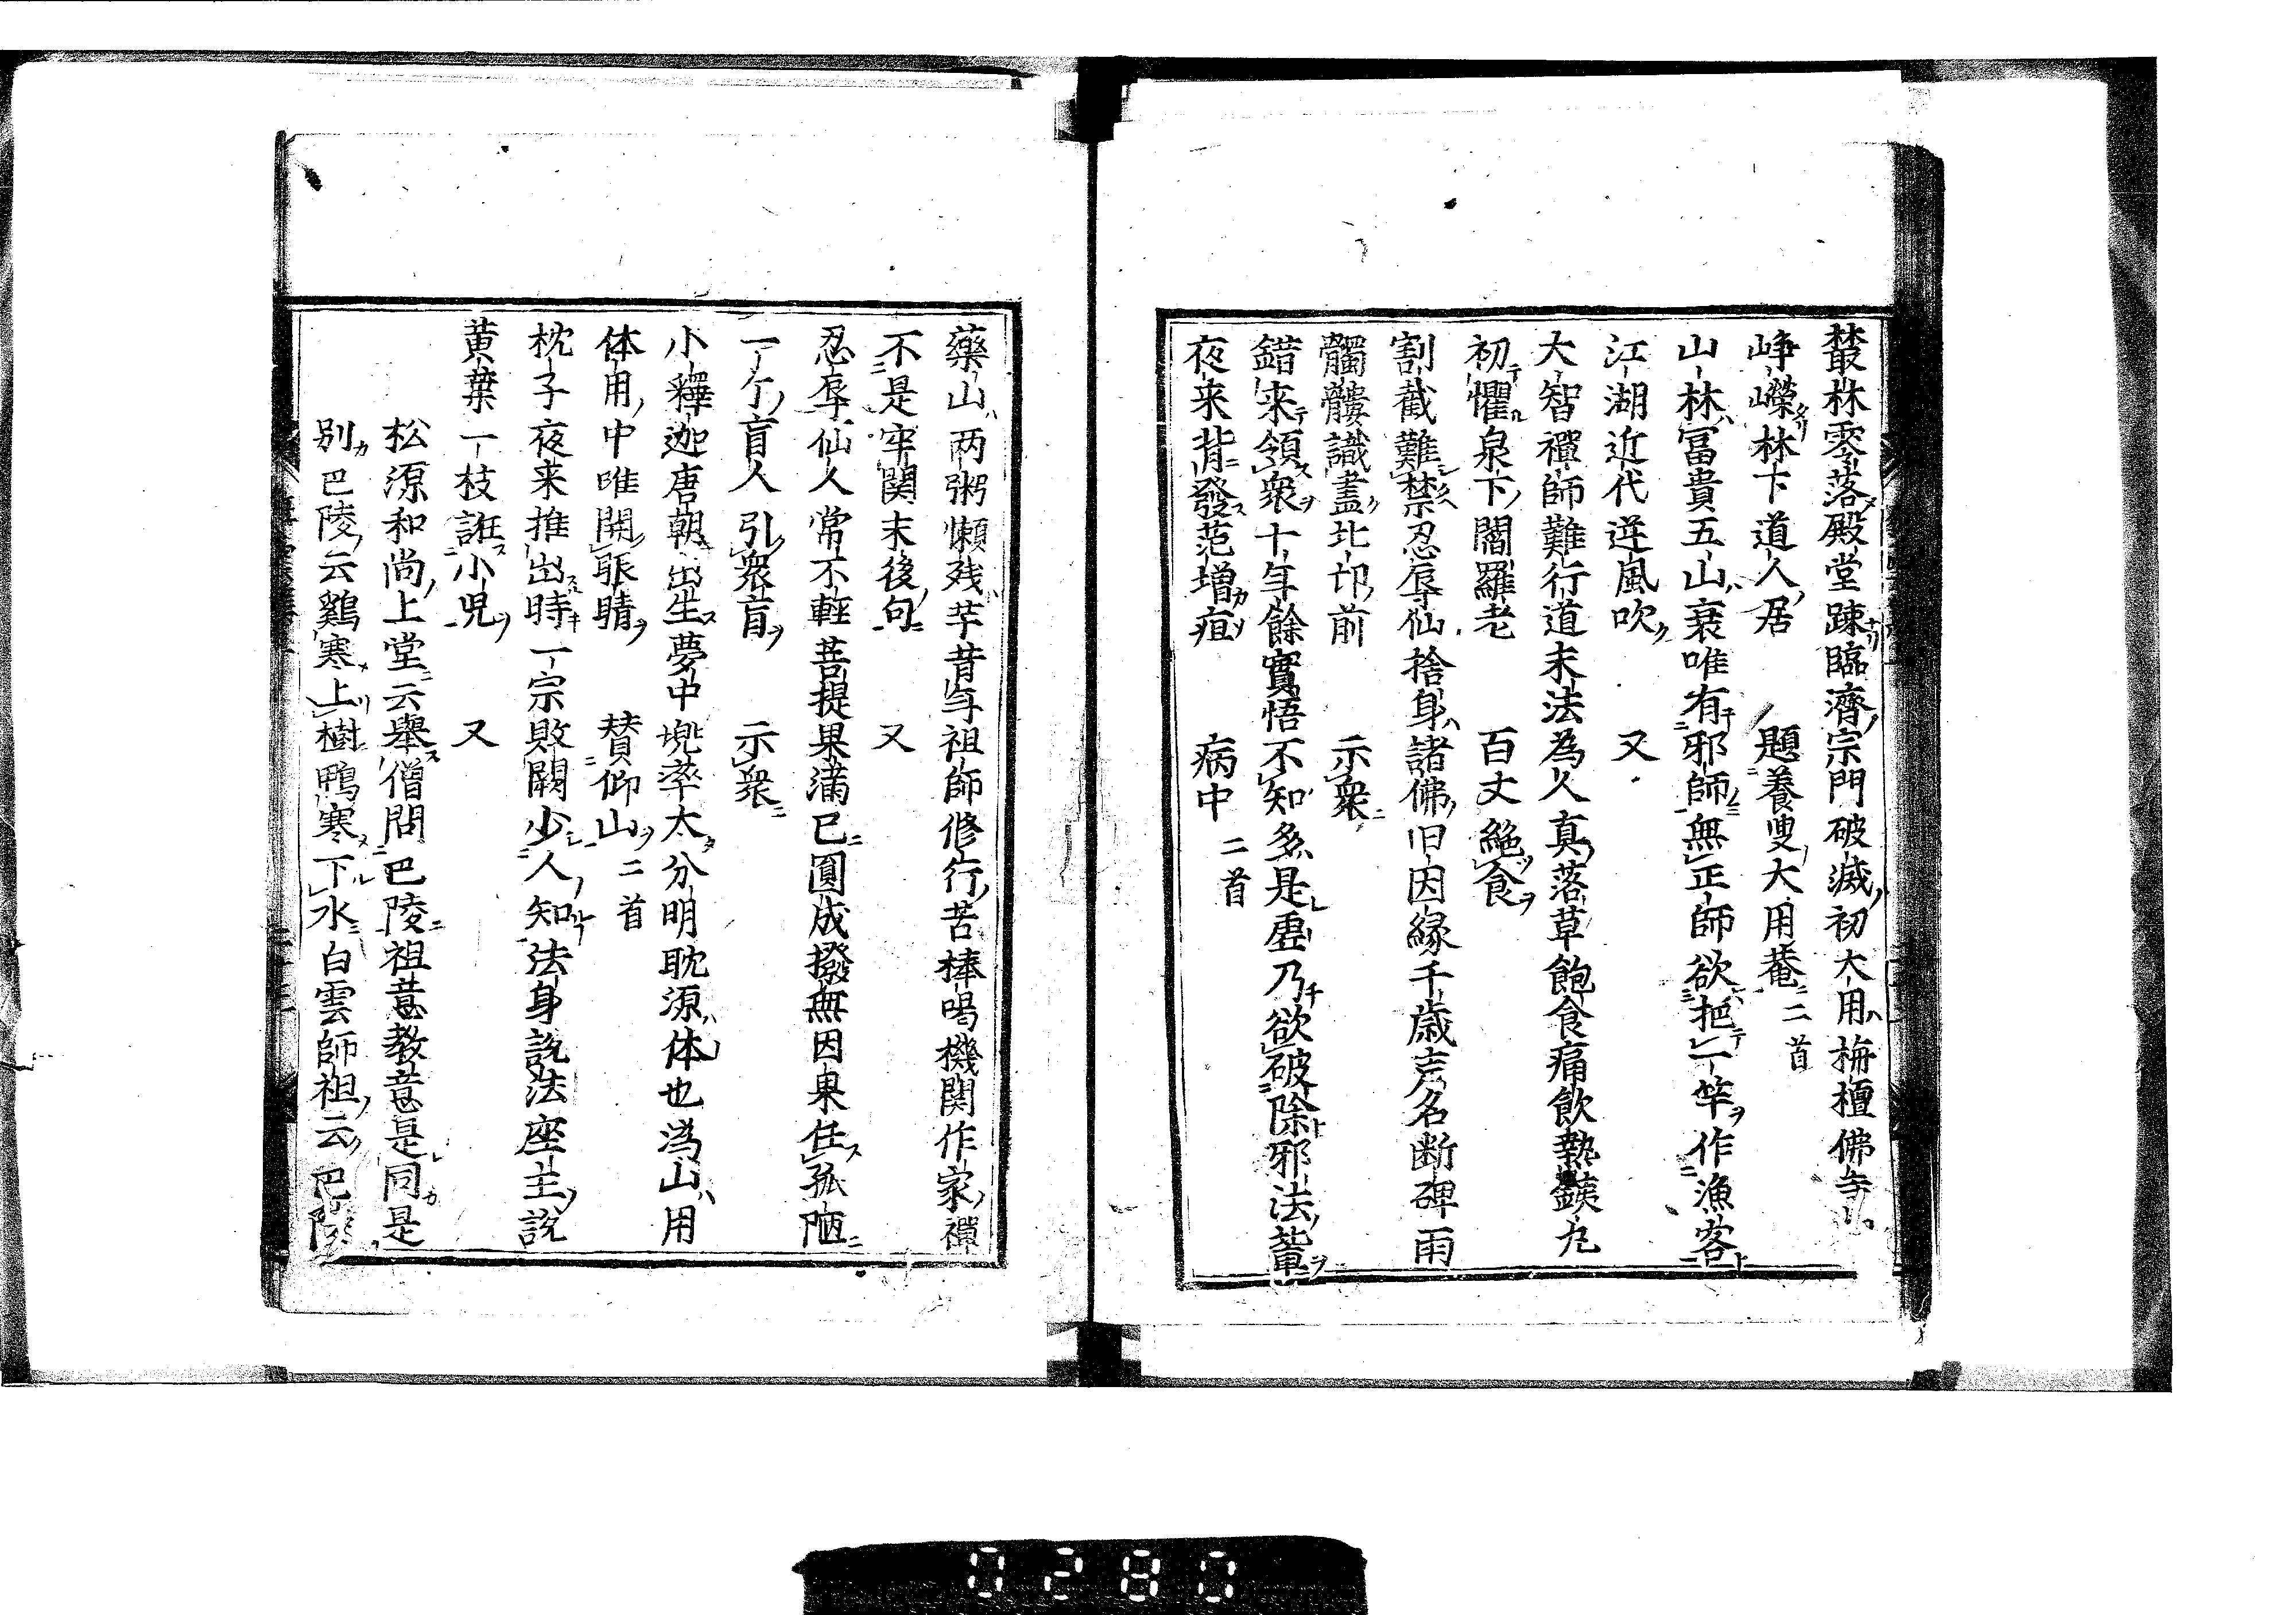 叢林零落殿堂踈臨濟宗門破滅初大用栴檀佛寺
崢嶸林下道人居 題養叟大用菴 二首
山林冨貴五山衰唯有邪師無正師欲把一竿作漁客
江湖近代逆風吹 又
大智禪師難行道末法為人真落草飽食痛飲熱鐵丸
初懼泉下閻羅老 百丈絶食
割截難禁忍辱仙捨身諸佛旧因縁千歳声名断碑雨
髑髏識盡北邙前 示衆
錯来領衆十年餘實悟不知多是虚乃欲破除邪法輩
夜来背發范増疽 病中 二首
藥山両粥懶残芋昔年祖師修行苦棒喝機関作家禪
不是牢関末後句 又
忍辱仙人常不軽菩提果満已圓成撥無因果任孤陋
一个盲人引衆盲 示衆
小釋迦唐朝出生夢中兜率太分明耽源体也溈山用
体用中唯開眼睛 賛仰山 二首
枕子夜来推出時一宗敗闕少人知法身説法座主説
黄葉一枝誑小児 又
松源和尚上堂云舉僧問巴陵祖意教意是同是
別巴陵云鷄寒上樹鴨寒下水白雲師祖云巴陵
0280